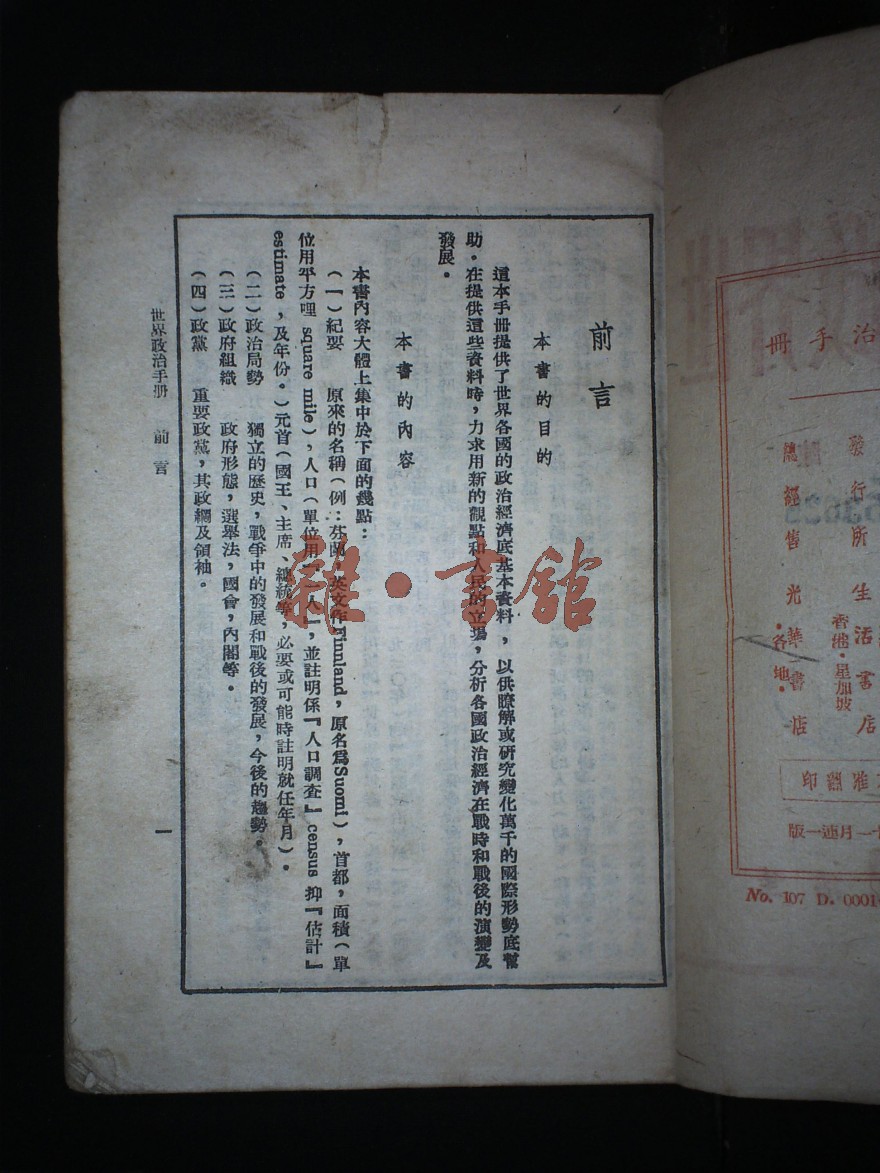 前言
本書的目的
這本手冊提供了世界各國的政治經濟底基本資料，以供瞭解或研究變化萬千的國際形勢底幫
助。在提供這些資料時，力求用新的觀點和人民的立場，分析各國政治經濟在戰時和戰後的演變及
發展。
本書的內容
本書內容大體上集中於下面的幾點：
（一）紀要　原來的名稱（例：芬蘭，英文作Finnland，原名爲Suomi），首都，面積（單
位用平方哩 square mile），人口（單位用「一人」，並註明係『人口調査』census 抑『估計』
estimate，及年份。）元首（國王、主席、總統等，必要或可能時註明就任年月）。
（二）政治局勢　獨立的歷史，戰爭中的發展和戰後的發展，今後的趨勢。
（三）政府組織　政府形態，選舉法，國會，內閣等。
（四）政黨　重要政黨，其政綱及領袖。
世界政治手册　前言
一
雜·書館
治手冊
發行所生活書店
香港·星加坡
總經售光華書店
·各地·
准翻印
一月連一版
No. 107 D. 0001